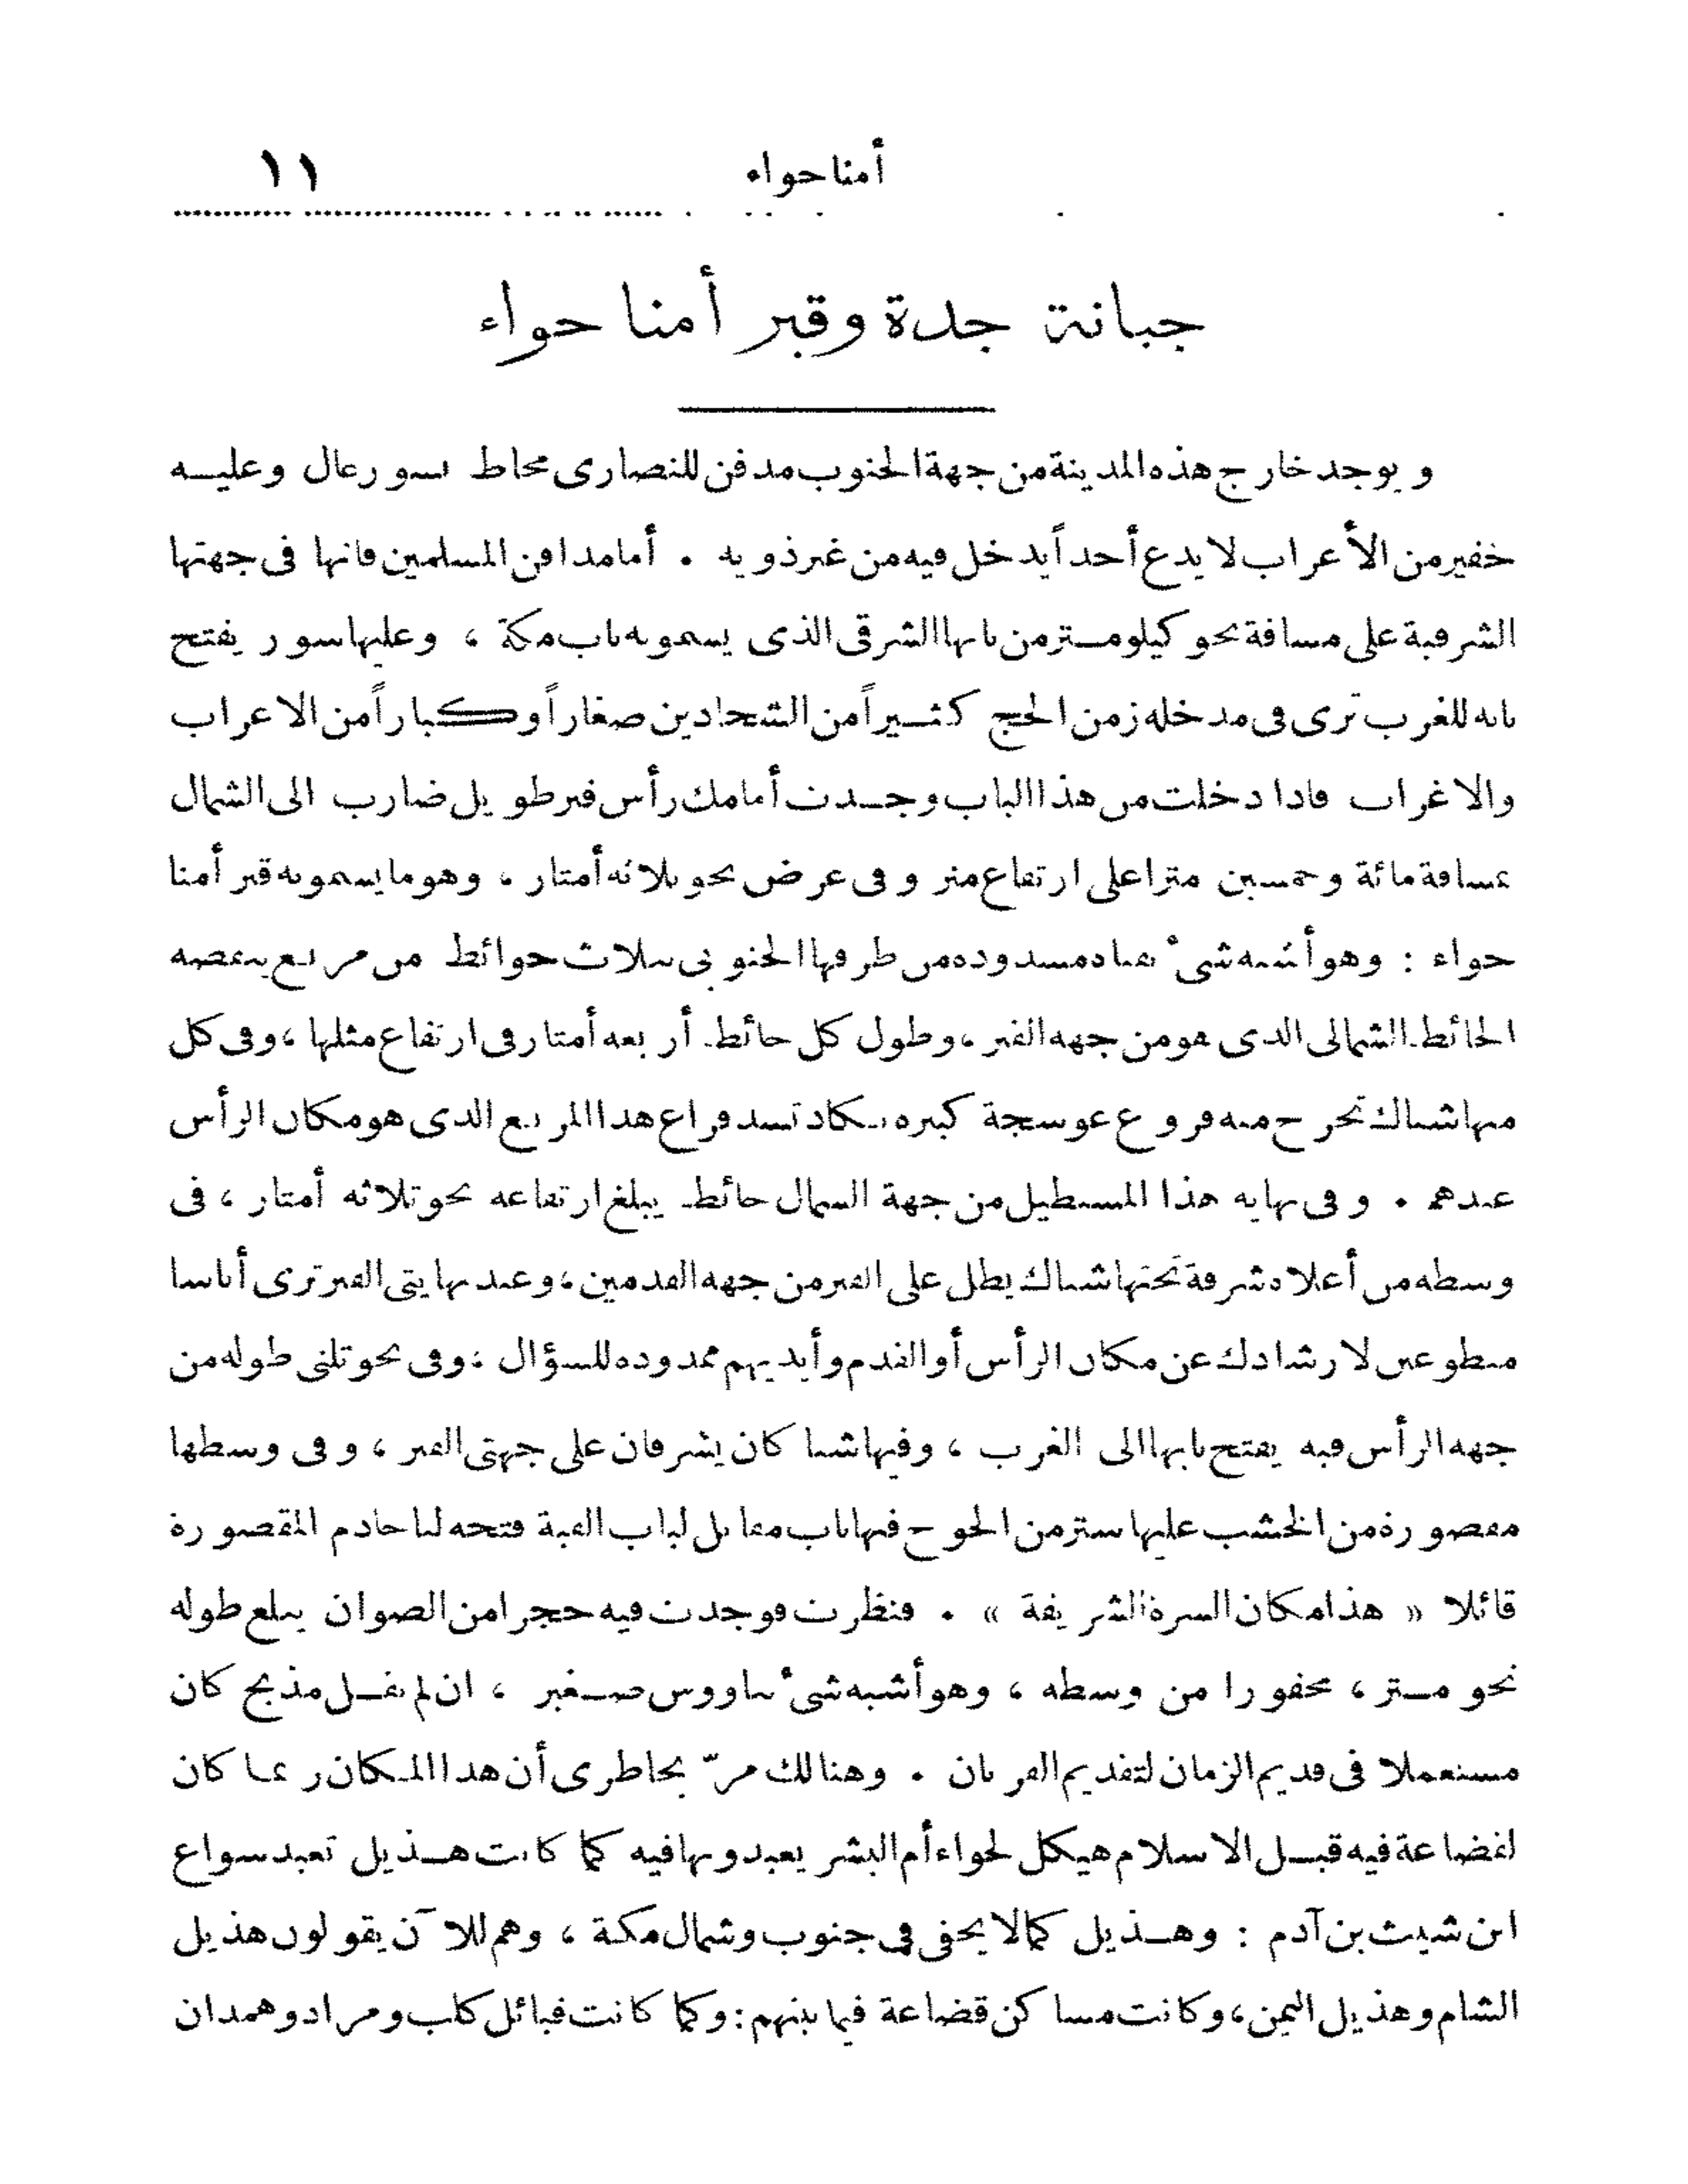 أمنا حواء ١١
جبانة جدة وقبر أمنا حواء
ويوجد خارج هذه المدينة من جهة الجنوب مدفن للنصارى محاط بسور عال وعليه
خفير من الأعراب لا يدع أحداً يدخل فيه من غير ذويه . أما مدافن المسلمين فانها فى جهتها
الشرقية على مسافة نحو كيلومتر من بابها الشرقى الذى يسمونه باب مكة ، وعليها سور يفتح
بابه للغرب ترى فى مدخله زمن الحج كثيراً من الشحاذين صغاراً وكباراً من الاعراب
والاغراب فاذا دخلت من هذا الباب وجدت أمامك رأس قبر طويل ضارب الى الشمال
بمسافة مائة وخمسين مترا على ارتفاع متر وفى عرض نحو ثلاثة أمتار ، وهو ما يسمونه قبر أمنا
حواء : وهو أشبه شىء بقناة مسدودة من طرفها الجنوبى بثلاث حوائط من مربع ينقصه
الحائط الشمالى الذى هو من جهة القبر ، وطول كل حائط أربعة أمتار فى ارتفاع مثلها ، وفى كل
منها شباك تخرج منه فروع عوسجة كبيرة تكاد تسد فراغ هذا المربع الذى هو مكان الرأس
عندهم . وفى نهاية هذا المستطيل من جهة الشمال حائط يبلغ ارتفاعه نحو ثلاثة أمتار ، فى
وسطه من أعلاه شرفة تحتها شباك يطل على القبر من جهة القدمين ، وعند نهايتى القبر ترى أناسا
متطوعين لارشادك عن مكان الرأس أو القدم وأيديهم ممدودة للسؤال ؛ وفى نحو ثلثى طوله من
جهة الرأس قبة يفتح بابها الى الغرب ، وفيها شباكان يشرفان على جهتى القبر ، وفى وسطها
مقصورة من الخشب عليها ستر من الجوخ فيها باب مقابل لباب القبة فتحه لنا خادم المقصورة
قائلا « هذا مكان السرة الشريفة » . فنظرت فوجدت فيه حجرا من الصوان يبلغ طوله
نحو متر ، محفورا من وسطه ، وهو أشبه شىء بناووس صغير ، ان لم نقل مذبح كان
مستعملا فى قديم الزمان لتقديم القربان . وهنالك مرّ بخاطرى أن هذا المكان ربما كان
لقضاعة فيه قبل الاسلام هيكل لحواء أم البشر يعبدونها فيه كما كانت هذيل تعبد سواع
ابن شيث بن آدم : وهذيل كما لا يخفى فى جنوب وشمال مكة ، وهم للآن يقولون هذيل
الشام وهذيل اليمن ، وكانت مساكن قضاعة فيما بينهم : وكما كانت قبائل كلب ومراد وهمدان